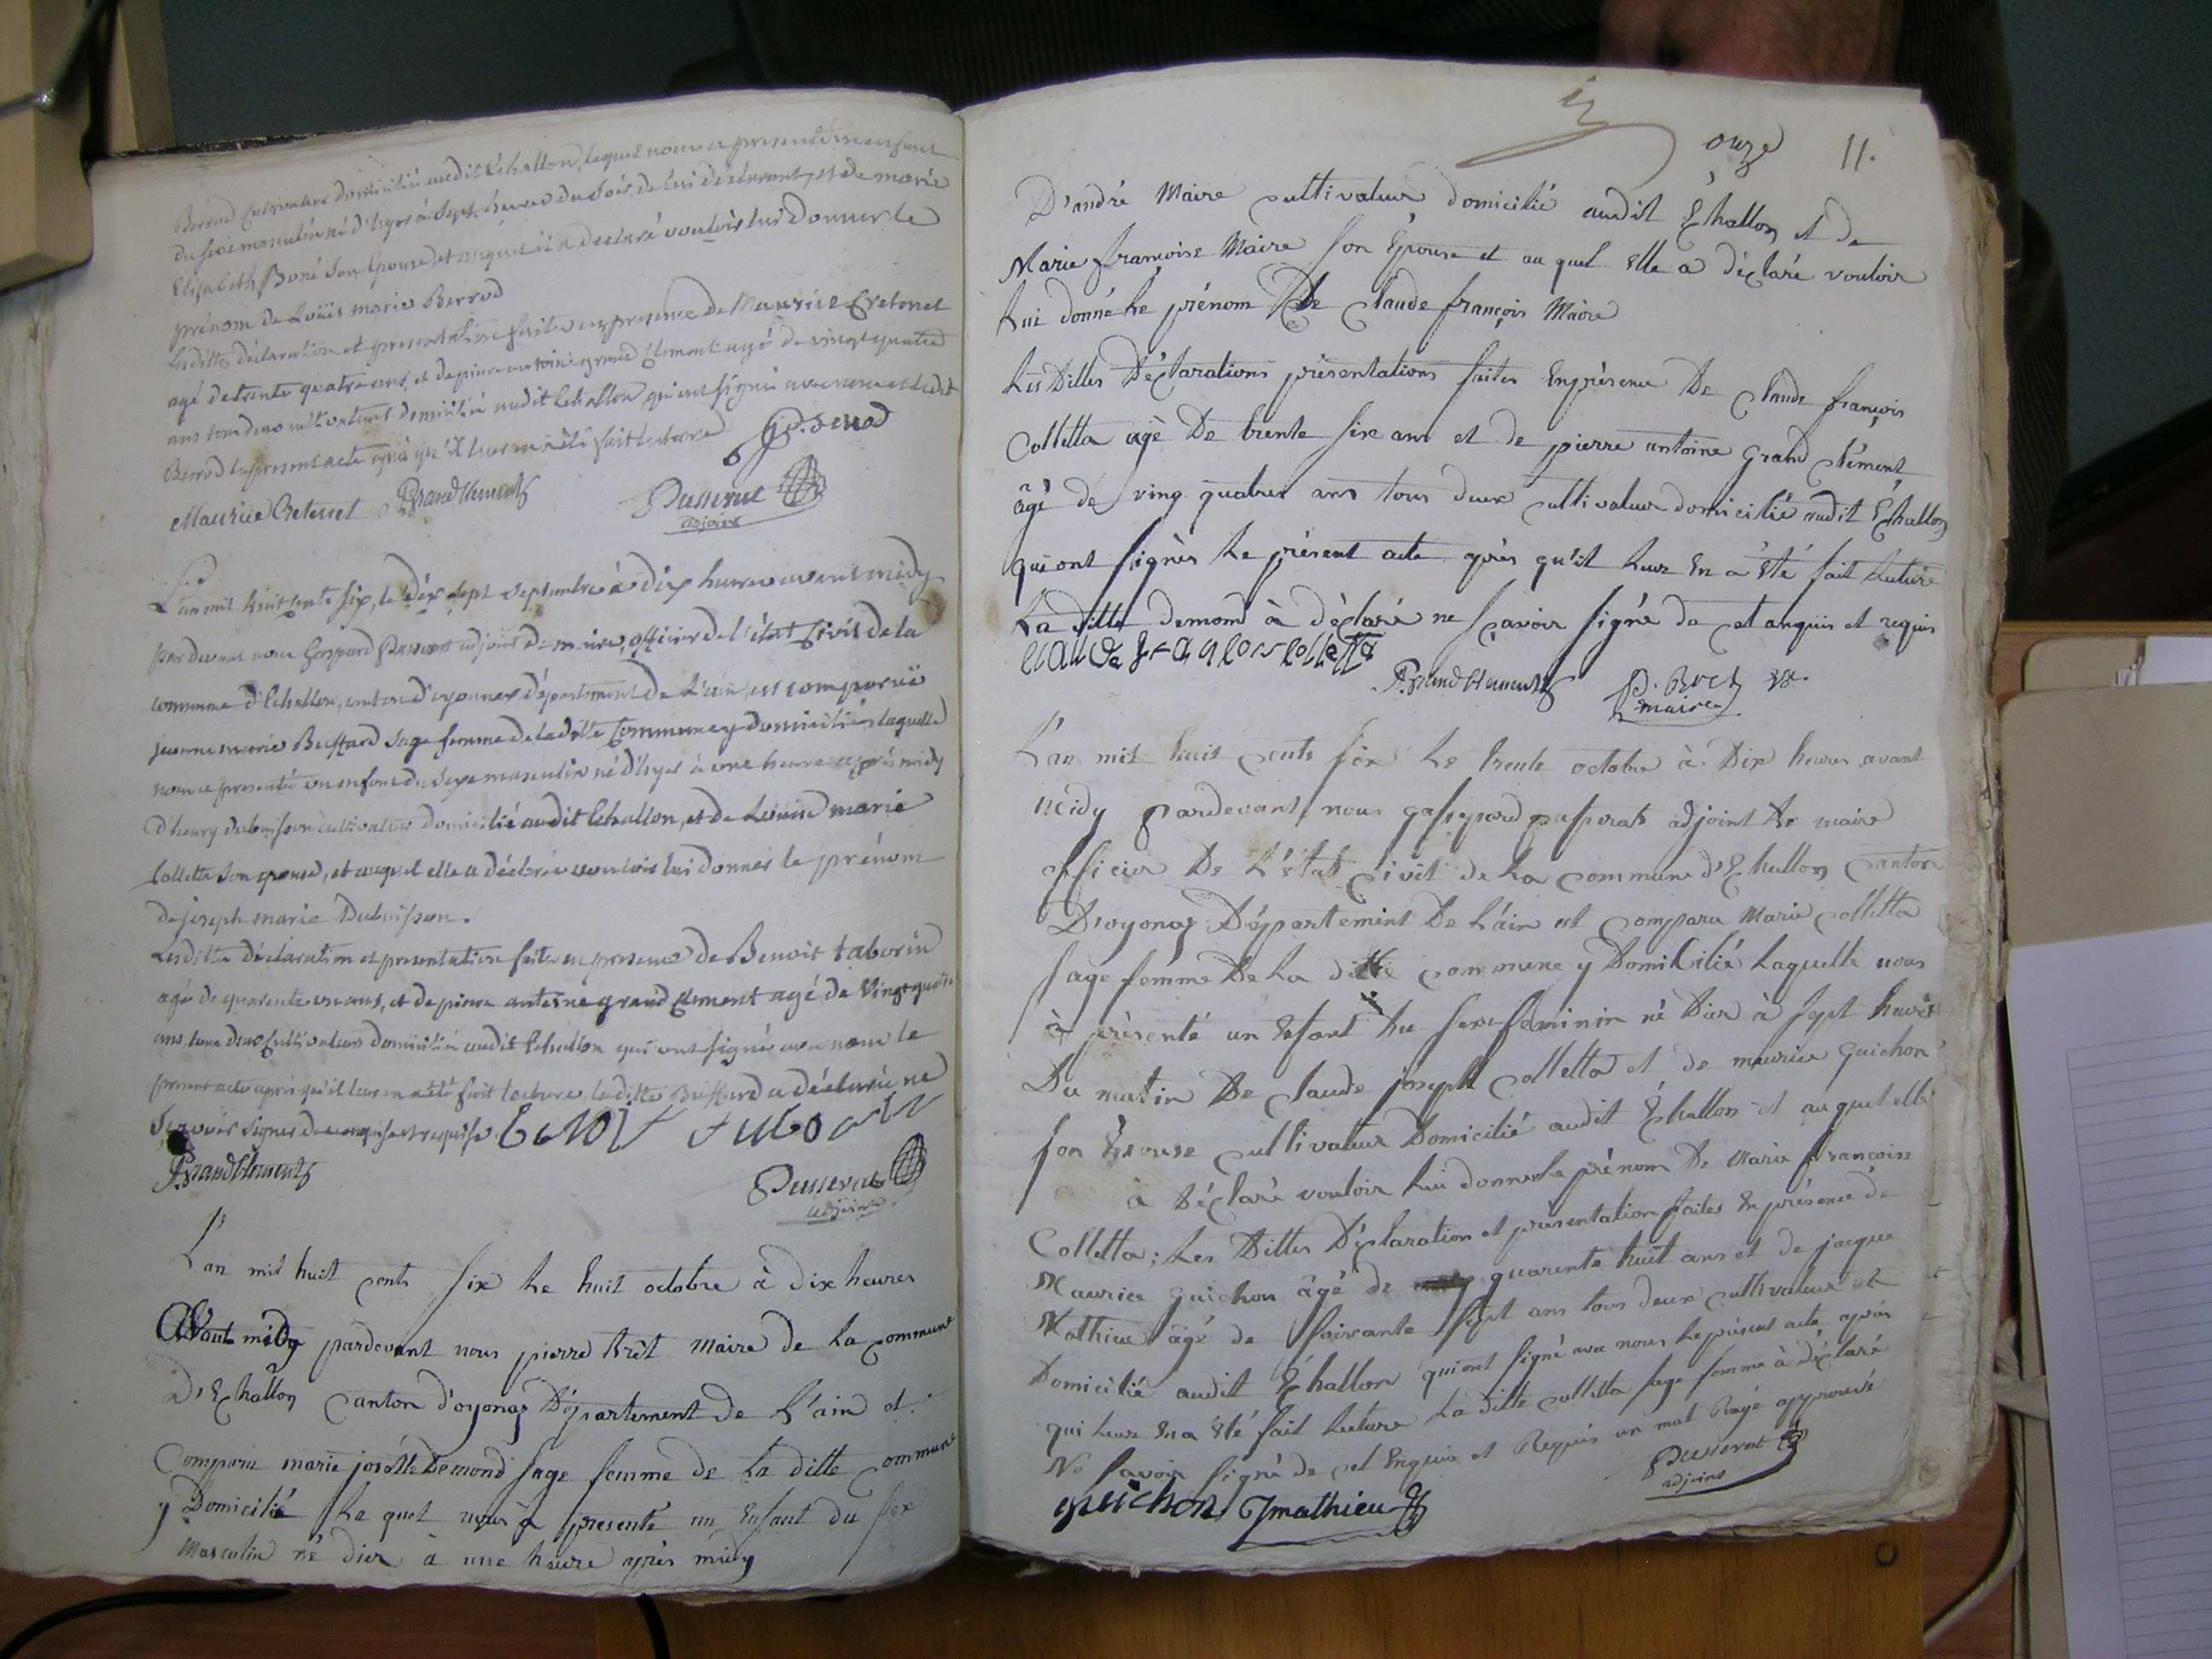 Berrod cultivateur domicilié audit Echallon, lequel nous a presenté un enfant
du sexe masculin né d'hyer à sept heures du soir, de lui déclarant, et de marie
Elisabeth Boné son Epouse, et auquel il a declaré vouloir lui donner le
prénom de Louis marie Berrod
Lesdittes déclaration et presentation faites en presence de Maurice Cretenet
agé de trente quatre ans, et de pierre antoine grand Clement agé de vingt quatre
ans tous deux cultivateurs domicilié audit Echallon, qui ont signé avec nous et ledit
Berrod le present acte après qu'il leur en a été fait lecture
Maurice Cretenet PGrandClement Passerat
adjoint
L'an mil huit cents six, le dix sept septembre à dix heures avant midy
par devant nous Gaspard Passerat adjoint de maire, officier de l'état Civil de la
commune d'Echallon, canton d'oyonnax département de L'ain, est comparuë
jeanne marie Buffard sage femme de la ditte Commune y domiciliée laquelle
nous a presenté un enfant du sexe masculin né d'hyer à une heure après midy
d'henry dubuisson cultivateur domicilié audit Echallon, et de Louise marie
Colletta son epouse, et auquel elle a déclaré vouloir lui donner le prénom
de joseph marie Dubuisson.
Lesdittes déclaration et presentation faites en presence de Benoit taborin
agé de quarente un ans, et de pierre antoine grand Clement agé de Vingt quatre
ans, tous deux Cultivateurs domicilié audit Echallon qui ont signé avec nous le
present acte après qu'il leur en a été fait lecture, laditte Buffard a déclarée ne
sçavoir signer de ce enquise et requise benoit taborin
PGrandClement Passerat
adjoint
L'an mil huit cents six Le huit octobre à dix heures
Avant midy pardevant nous pierre Brét Maire de La Commune
D'Echallon Canton d'oyonaz Département de L'ain et
Comparu marie josette Demond sage femme de La ditte Commune
y Domicilié Le quel nous a presenté un Enfant du sex
Masculin né dier à une heure après midy
onze 11.
D'andré Maire cultivateur domicilié audit Echallon et de
Marie françoise Maire son Epouse et au quel Elle a déclaré vouloir
Lui donné Le prénom De Claude françois Maire
Les Dittes Déclarations présentations faites En présence De Claude françois
Colletta agé De trente six ans et de pierre antoine Grand Clément
âgé de ving quatres ans tous deux cultivateur domicilié audit Echallon
qui ont signés Le présent acte après qu'il Leur En a été fait Lecture
La ditte demond à déclaré ne sçavoir signé de cet anquis et requis
claude françois colletta
PGrandClement P. Bret
maire
L'an mil huit cents six Le trente octobre à Dix heures avant
Midy pardevant nous gaspard passerat adjoint De maire
officier De L'état Civil de La Commune d'Echallon Canton
Doyonaz Département De L'ain est Comparu Marie Colletta
sage femme De La ditte commune y Domicilié Laquelle nous
à présenté un Enfant du sexe féminin né Dier à sept heures
Du matin De Claude joseph Colletta et de maurice guichon
son Epouse cultivateur Domicilié audit Echallon et auquel elle
à Déclaré vouloir Lui donner Le prénom De Marie françoise
Colletta; Les Dittes Déclaration et présentation faites En présence de
Maurice guichon âgé de quarente huit ans et de jacque
Mathieu âgé de soixante sept ans tous deux cultivateur et
Domicilié audit Echallon qui ont signé avec nous Le présent acte après
qui Leur En a été fait Lecture La ditte colletta sage femme à déclaré
Ne savoir signé de cet Enquis et Requis un mot Rayé approuvé
Passerat
adjoint
guichon Jmathieu